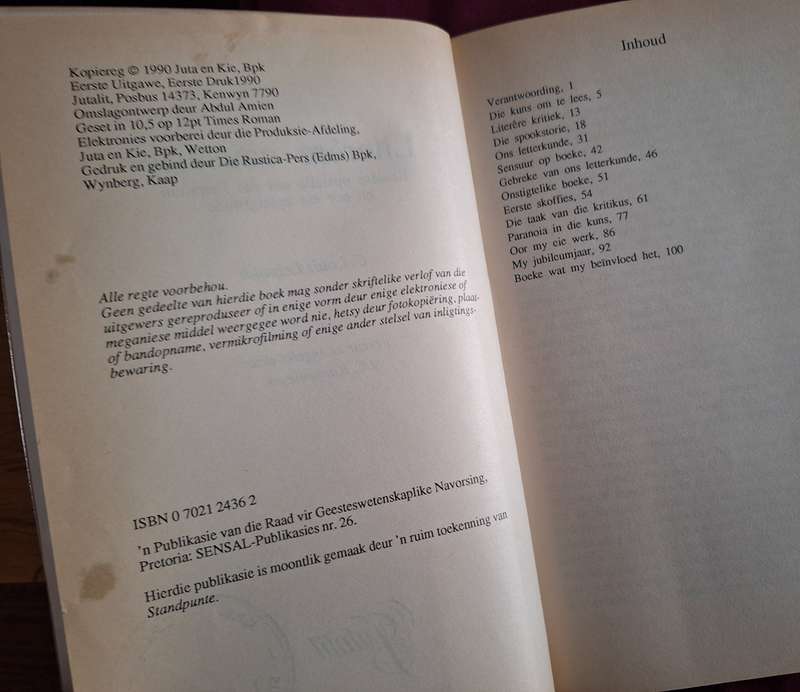 Kopiereg © 1990 Juta en Kie, Bpk
Eerste Uitgawe, Eerste Druk1990
Jutalit, Posbus 14373, Kenwyn 7790
Omslagontwerp deur Abdul Amien
Geset in 10,5 op 12pt Times Roman
Elektronies voorberei deur die Produksie-Afdeling,
Juta en Kie, Bpk, Wetton
Gedruk en gebind deur Die Rustica-Pers (Edms) Bpk,
Wynberg, Kaap
Alle regte voorbehou.
Geen gedeelte van hierdie boek mag sonder skriftelike verlof van die
uitgewers gereproduseer of in enige vorm deur enige elektroniese of
meganiese middel weergegee word nie, hetsy deur fotokopiëring, plaat-
of bandopname, vermikrofilming of enige ander stelsel van inligtings-
bewaring.
ISBN 0 7021 2436 2
'n Publikasie van die Raad vir Geesteswetenskaplike Navorsing,
Pretoria: SENSAL-Publikasies nr. 26.
Hierdie publikasie is moontlik gemaak deur 'n ruim toekenning van
Standpunte.
Inhoud
Verantwoording, 1
Die kuns om te lees, 5
Literêre kritiek, 13
Die spookstorie, 18
Ons letterkunde, 31
Sensuur op boeke, 42
Gebreke van ons letterkunde, 46
Onstigtelike boeke, 51
Eerste skoffies, 54
Die taak van die kritikus, 61
Paranoia in die kuns, 77
Oor my eie werk, 86
My jubileumjaar, 92
Boeke wat my beïnvloed het, 100